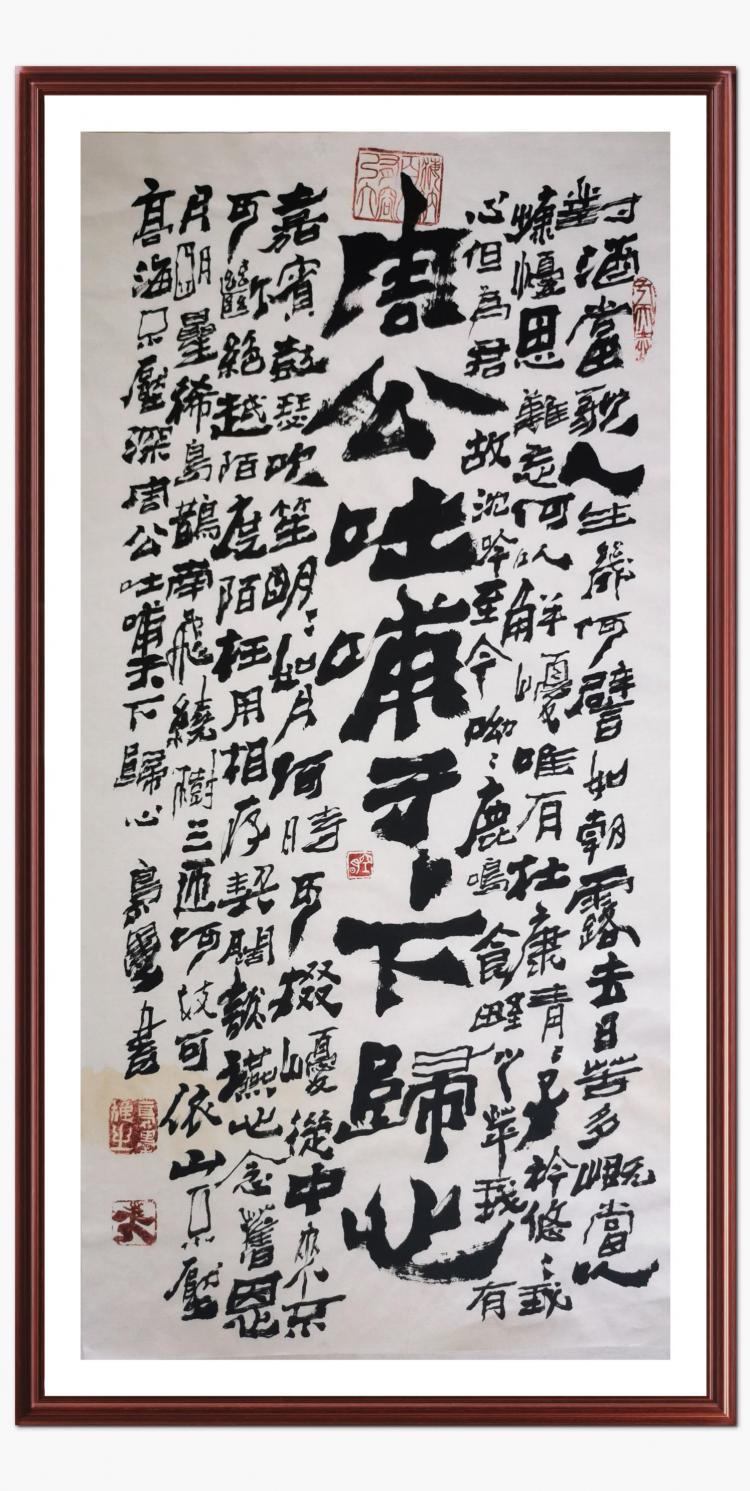 對酒當歌人生幾何譬如朝露去日苦多嘅當以
慷憂思難忘何以解憂唯有杜康青〻子衿悠〻我
心但為君故沈吟至今呦〻鹿鳴食野之苹我有
周公吐哺天下歸心
嘉賓鼓瑟吹笙明〻如月何時可掇憂從中來不
可斷絕越陌度陌枉用相存契闊談讌心念舊恩
月明星稀烏鵲南飛繞樹三匝何枝可依山不厭
高海不厭深周公吐哺天下歸心
書